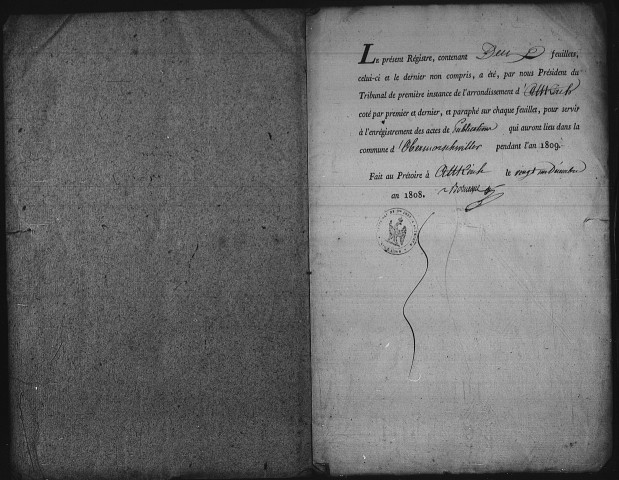 Le présent Régistre, contenant Deux feuillets,
celui-ci et le dernier non compris, a été, par nous Président du
Tribunal de première instance de l'arrondissement d'Altkirch
coté par premier et dernier, et paraphé sur chaque feuillet, pour servir
à l'enrégistrement des actes de Publication qui auront lieu dans la
commune d'Obermorschwiller pendant l'an 1809.
Fait au Prétoire à Altkirch le vingt un décembre
an 1808.